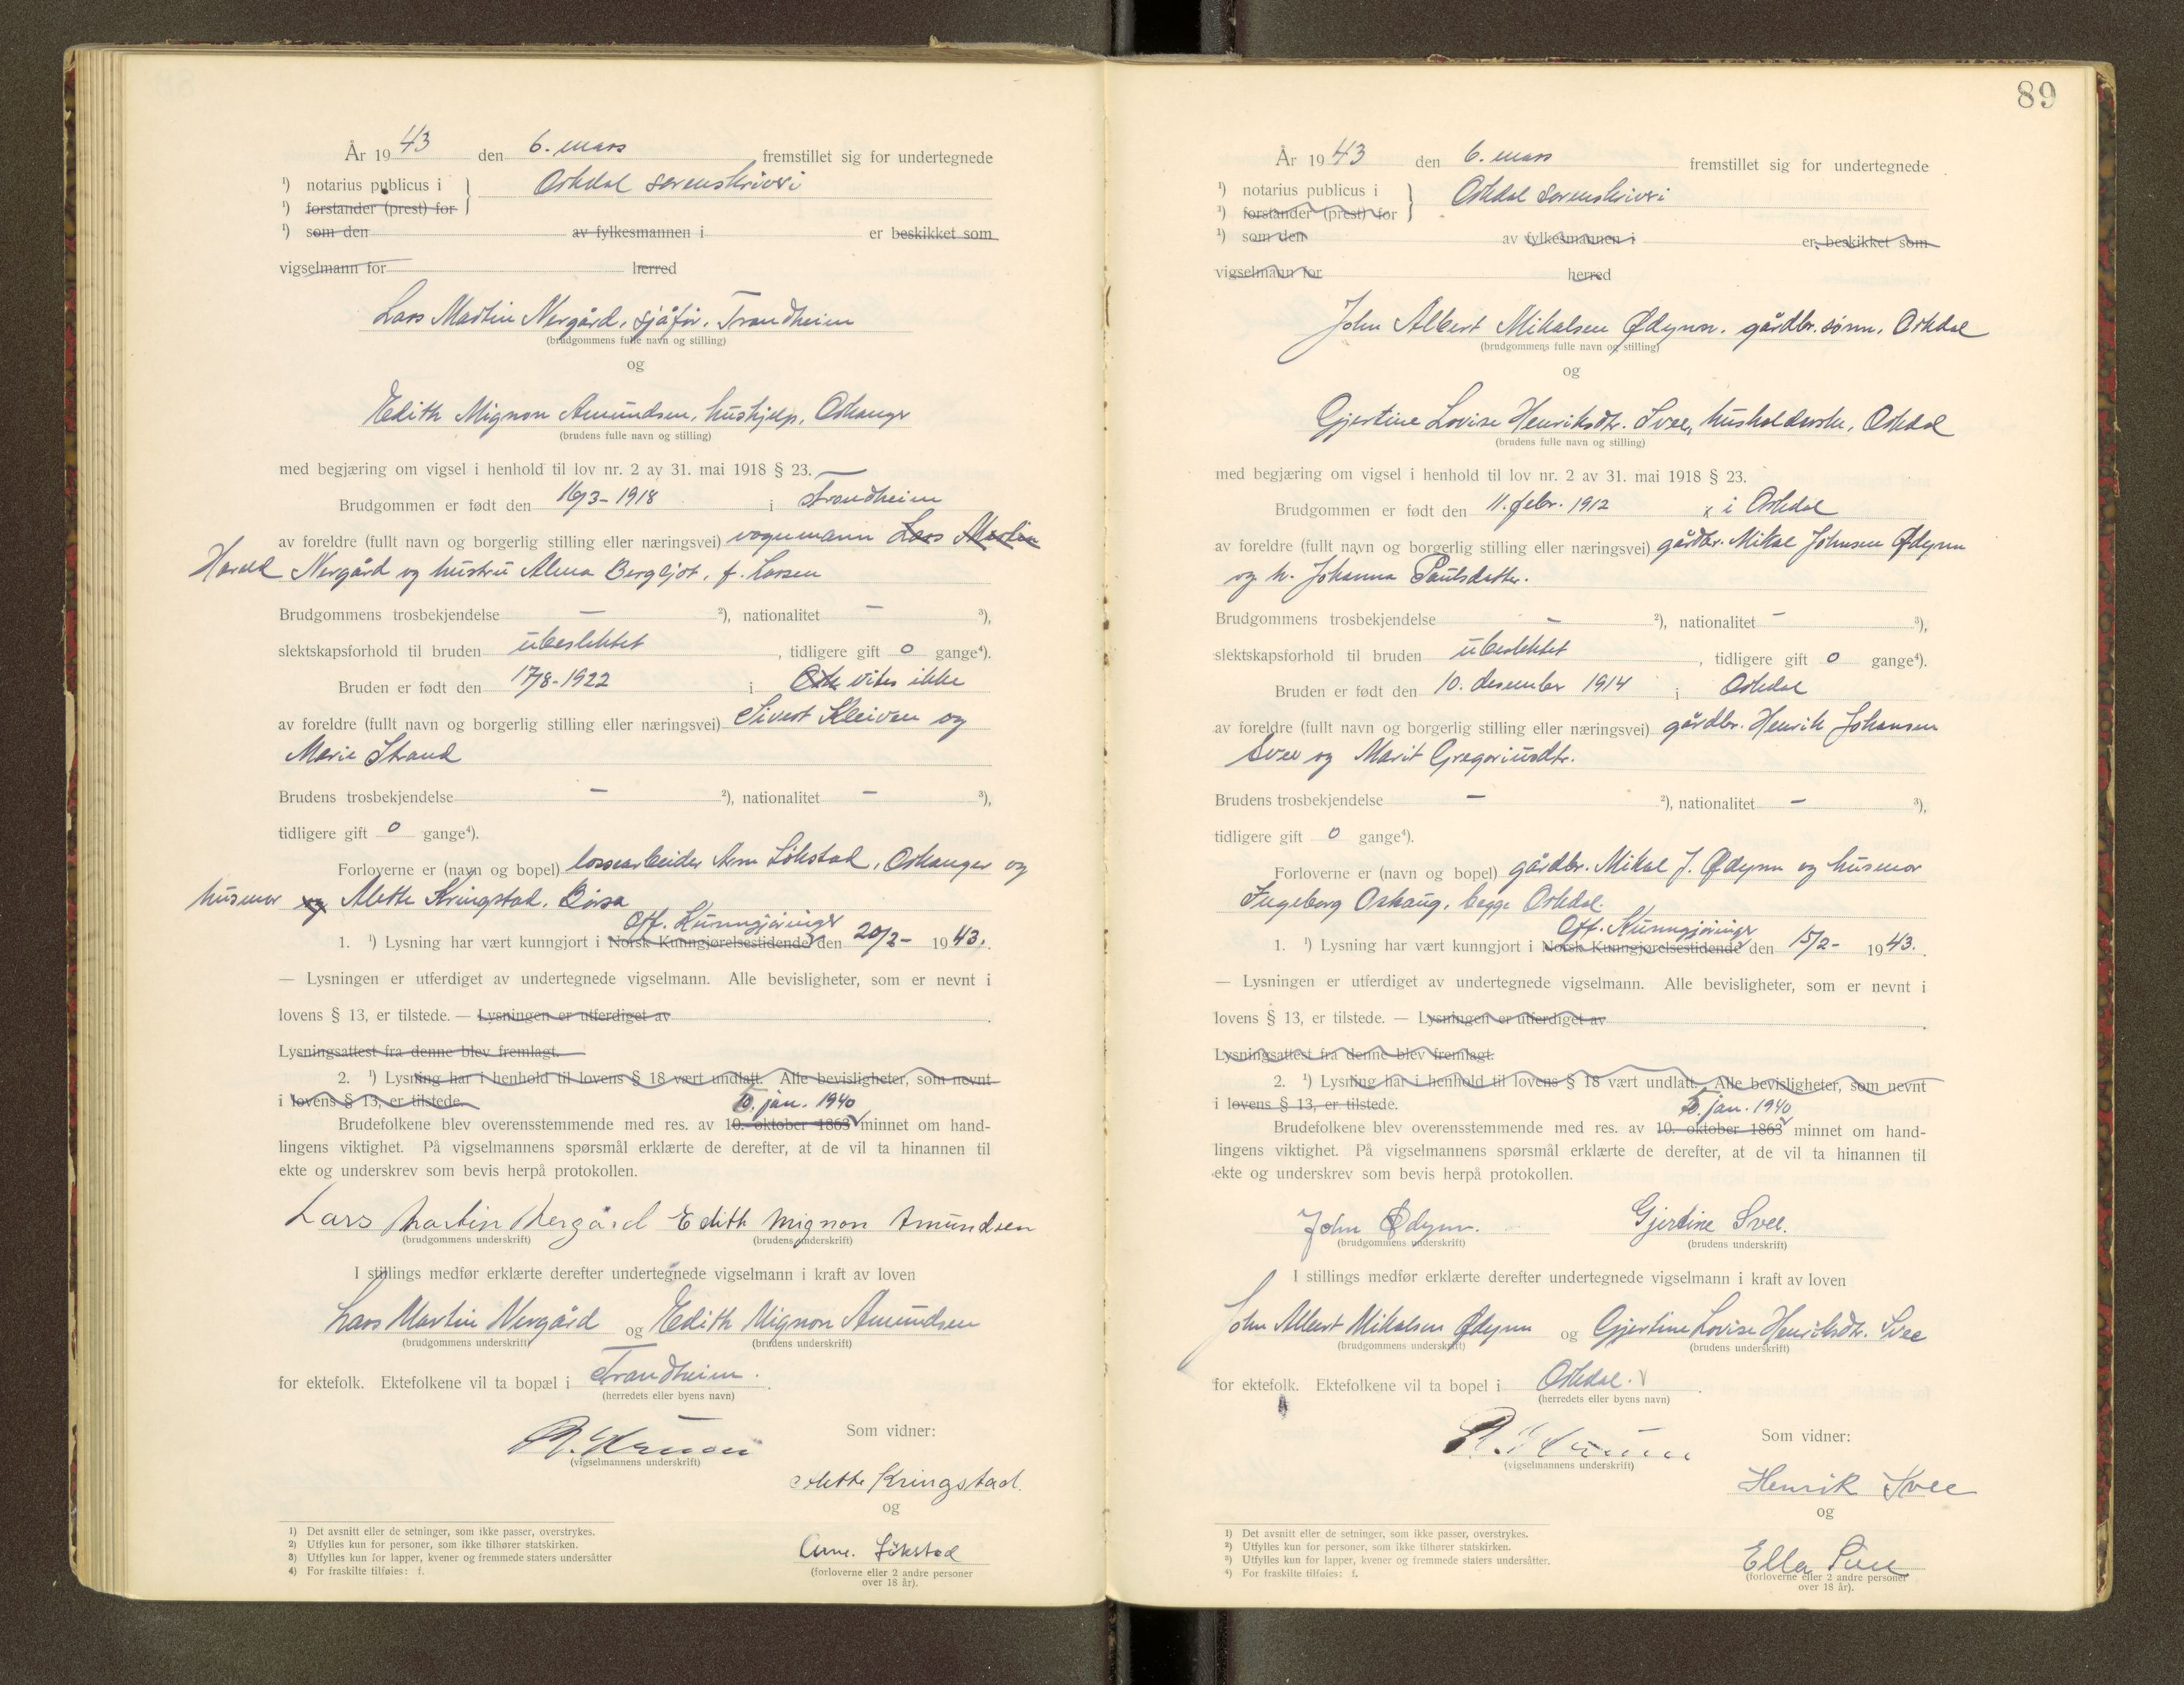 År 1943 den 6. mars fremstillet sig for undertegnede
¹) notarius publicus i } Orkdal sorenskriveri
¹) forstander (prest) for
¹) som den av fylkesmannen i er beskikket som
vigselmann for herred
Lars Martin Nergård, sjåfør, Trondheim
(brudgommens fulle navn og stilling)
og
Edith Mignon Amundsen, hushjelp, Orkanger
(brudens fulle navn og stilling)
med begjæring om vigsel i henhold til lov nr. 2 av 31. mai 1918 § 23.
Brudgommen er født den 16/3-1918 i Trondheim
av foreldre (fullt navn og borgerlig stilling eller næringsvei) vognmann Lars Martin
Harald Nergård og hustru Alma Bergljot, f. Larsen
Brudgommens trosbekjendelse — ²), nationalitet — ³),
slektskapsforhold til bruden ubeslektet, tidligere gift 0 gange⁴).
Bruden er født den 17/8-1922 i Ork vites ikke
av foreldre (fullt navn og borgerlig stilling eller næringsvei) Sivert Kleiven og
Marie Strand
Brudens trosbekjendelse — ²), nationalitet — ³),
tidligere gift 0 gange⁴).
Forloverne er (navn og bopel) lossearbeider Arne Solstad, Orkanger og
husmor og Mette Kringstad, Børsa
Off. Kunngjøringer
1. ¹) Lysning har vært kunngjort i Norsk Kunngjørelsestidende den 20/2- 1943.
— Lysningen er utferdiget av undertegnede vigselmann. Alle bevisligheter, som er nevnt i
lovens § 13, er tilstede. — Lysningen er utferdiget av
Lysningsattest fra denne blev fremlagt.
2. ¹) Lysning har i henhold til lovens § 18 vært undlatt. Alle bevisligheter, som nevnt
i lovens § 13, er tilstede.
5. jan. 1940
Brudefolkene blev overensstemmende med res. av 10. oktober 1863 minnet om hand-
lingens viktighet. På vigselmannens spørsmål erklærte de derefter, at de vil ta hinannen til
ekte og underskrev som bevis herpå protokollen.
Lars Martin Nergård Edith Mignon Amundsen
(brudgommens underskrift) (brudens underskrift)
I stillings medfør erklærte derefter undertegnede vigselmann i kraft av loven
Lars Martin Nergård og Edith Mignon Amundsen
(brudgommens underskrift) (brudens underskrift)
for ektefolk. Ektefolkene vil ta bopæl i Trondheim.
(herredets eller byens navn)
Som vidner:
(vigselmannens underskrift)
Mette Kringstad.
og
Arne. Solstad
(forloverne eller 2 andre personer
over 18 år).
1) Det avsnitt eller de setninger, som ikke passer, overstrykes.
2) Utfylles kun for personer, som ikke tilhører statskirken.
3) Utfylles kun for lapper, kvener og fremmede staters undersåtter
4) For fraskilte tilføies: f.
89
År 1943 den 6. mars fremstillet sig for undertegnede
¹) notarius publicus i } Orkdal sorenskriveri
¹) forstander (prest) for
¹) som den av fylkesmannen i er beskikket som
vigselmann for herred
John Albert Mikalsen Ødynn, gårdbr. sønn, Orkdal
(brudgommens fulle navn og stilling)
og
Gjertine Lovise Henriksdtr. Svee, husholderske, Orkdal
(brudens fulle navn og stilling)
med begjæring om vigsel i henhold til lov nr. 2 av 31. mai 1918 § 23.
Brudgommen er født den 11. febr. 1912 i Orkdal
av foreldre (fullt navn og borgerlig stilling eller næringsvei) gårdbr. Mikal Johnsen Ødynn
og h. Johanna Paulsdatter.
Brudgommens trosbekjendelse — ²), nationalitet — ³),
slektskapsforhold til bruden ubeslektet, tidligere gift 0 gange⁴).
Bruden er født den 10. desember 1914 i Orkdal
av foreldre (fullt navn og borgerlig stilling eller næringsvei) gårdbr. Henrik Johansen
Svee og Marit Gregoriusdtr.
Brudens trosbekjendelse — ²), nationalitet — ³),
tidligere gift 0 gange⁴).
Forloverne er (navn og bopel) gårdbr. Mikal J. Ødynn og husmor
Ingeborg Oshaug, begge Orkdal.
Off. Kunngjøringer
1. ¹) Lysning har vært kunngjort i Norsk Kunngjørelsestidende den 15/2- 1943.
— Lysningen er utferdiget av undertegnede vigselmann. Alle bevisligheter, som er nevnt i
lovens § 13, er tilstede. — Lysningen er utferdiget av
Lysningsattest fra denne blev fremlagt.
2. ¹) Lysning har i henhold til lovens § 18 vært undlatt. Alle bevisligheter, som nevnt
i lovens § 13, er tilstede.
5. jan. 1940
Brudefolkene blev overensstemmende med res. av 10. oktober 1863 minnet om hand-
lingens viktighet. På vigselmannens spørsmål erklærte de derefter, at de vil ta hinannen til
ekte og underskrev som bevis herpå protokollen.
John Ødynn. Gjertine Svee.
(brudgommens underskrift) (brudens underskrift)
I stillings medfør erklærte derefter undertegnede vigselmann i kraft av loven
John Albert Mikalsen Ødynn og Gjertine Lovise Henriksdtr. Svee
(brudgommens underskrift) (brudens underskrift)
for ektefolk. Ektefolkene vil ta bopel i Orkdal.
(herredets eller byens navn)
Som vidner:
(vigselmannens underskrift)
Henrik Svee
og
Ella Svee
(forloverne eller 2 andre personer
over 18 år).
1) Det avsnitt eller de setninger, som ikke passer, overstrykes.
2) Utfylles kun for personer, som ikke tilhører statskirken.
3) Utfylles kun for lapper, kvener og fremmede staters undersåtter.
4) For fraskilte tilføies: f.